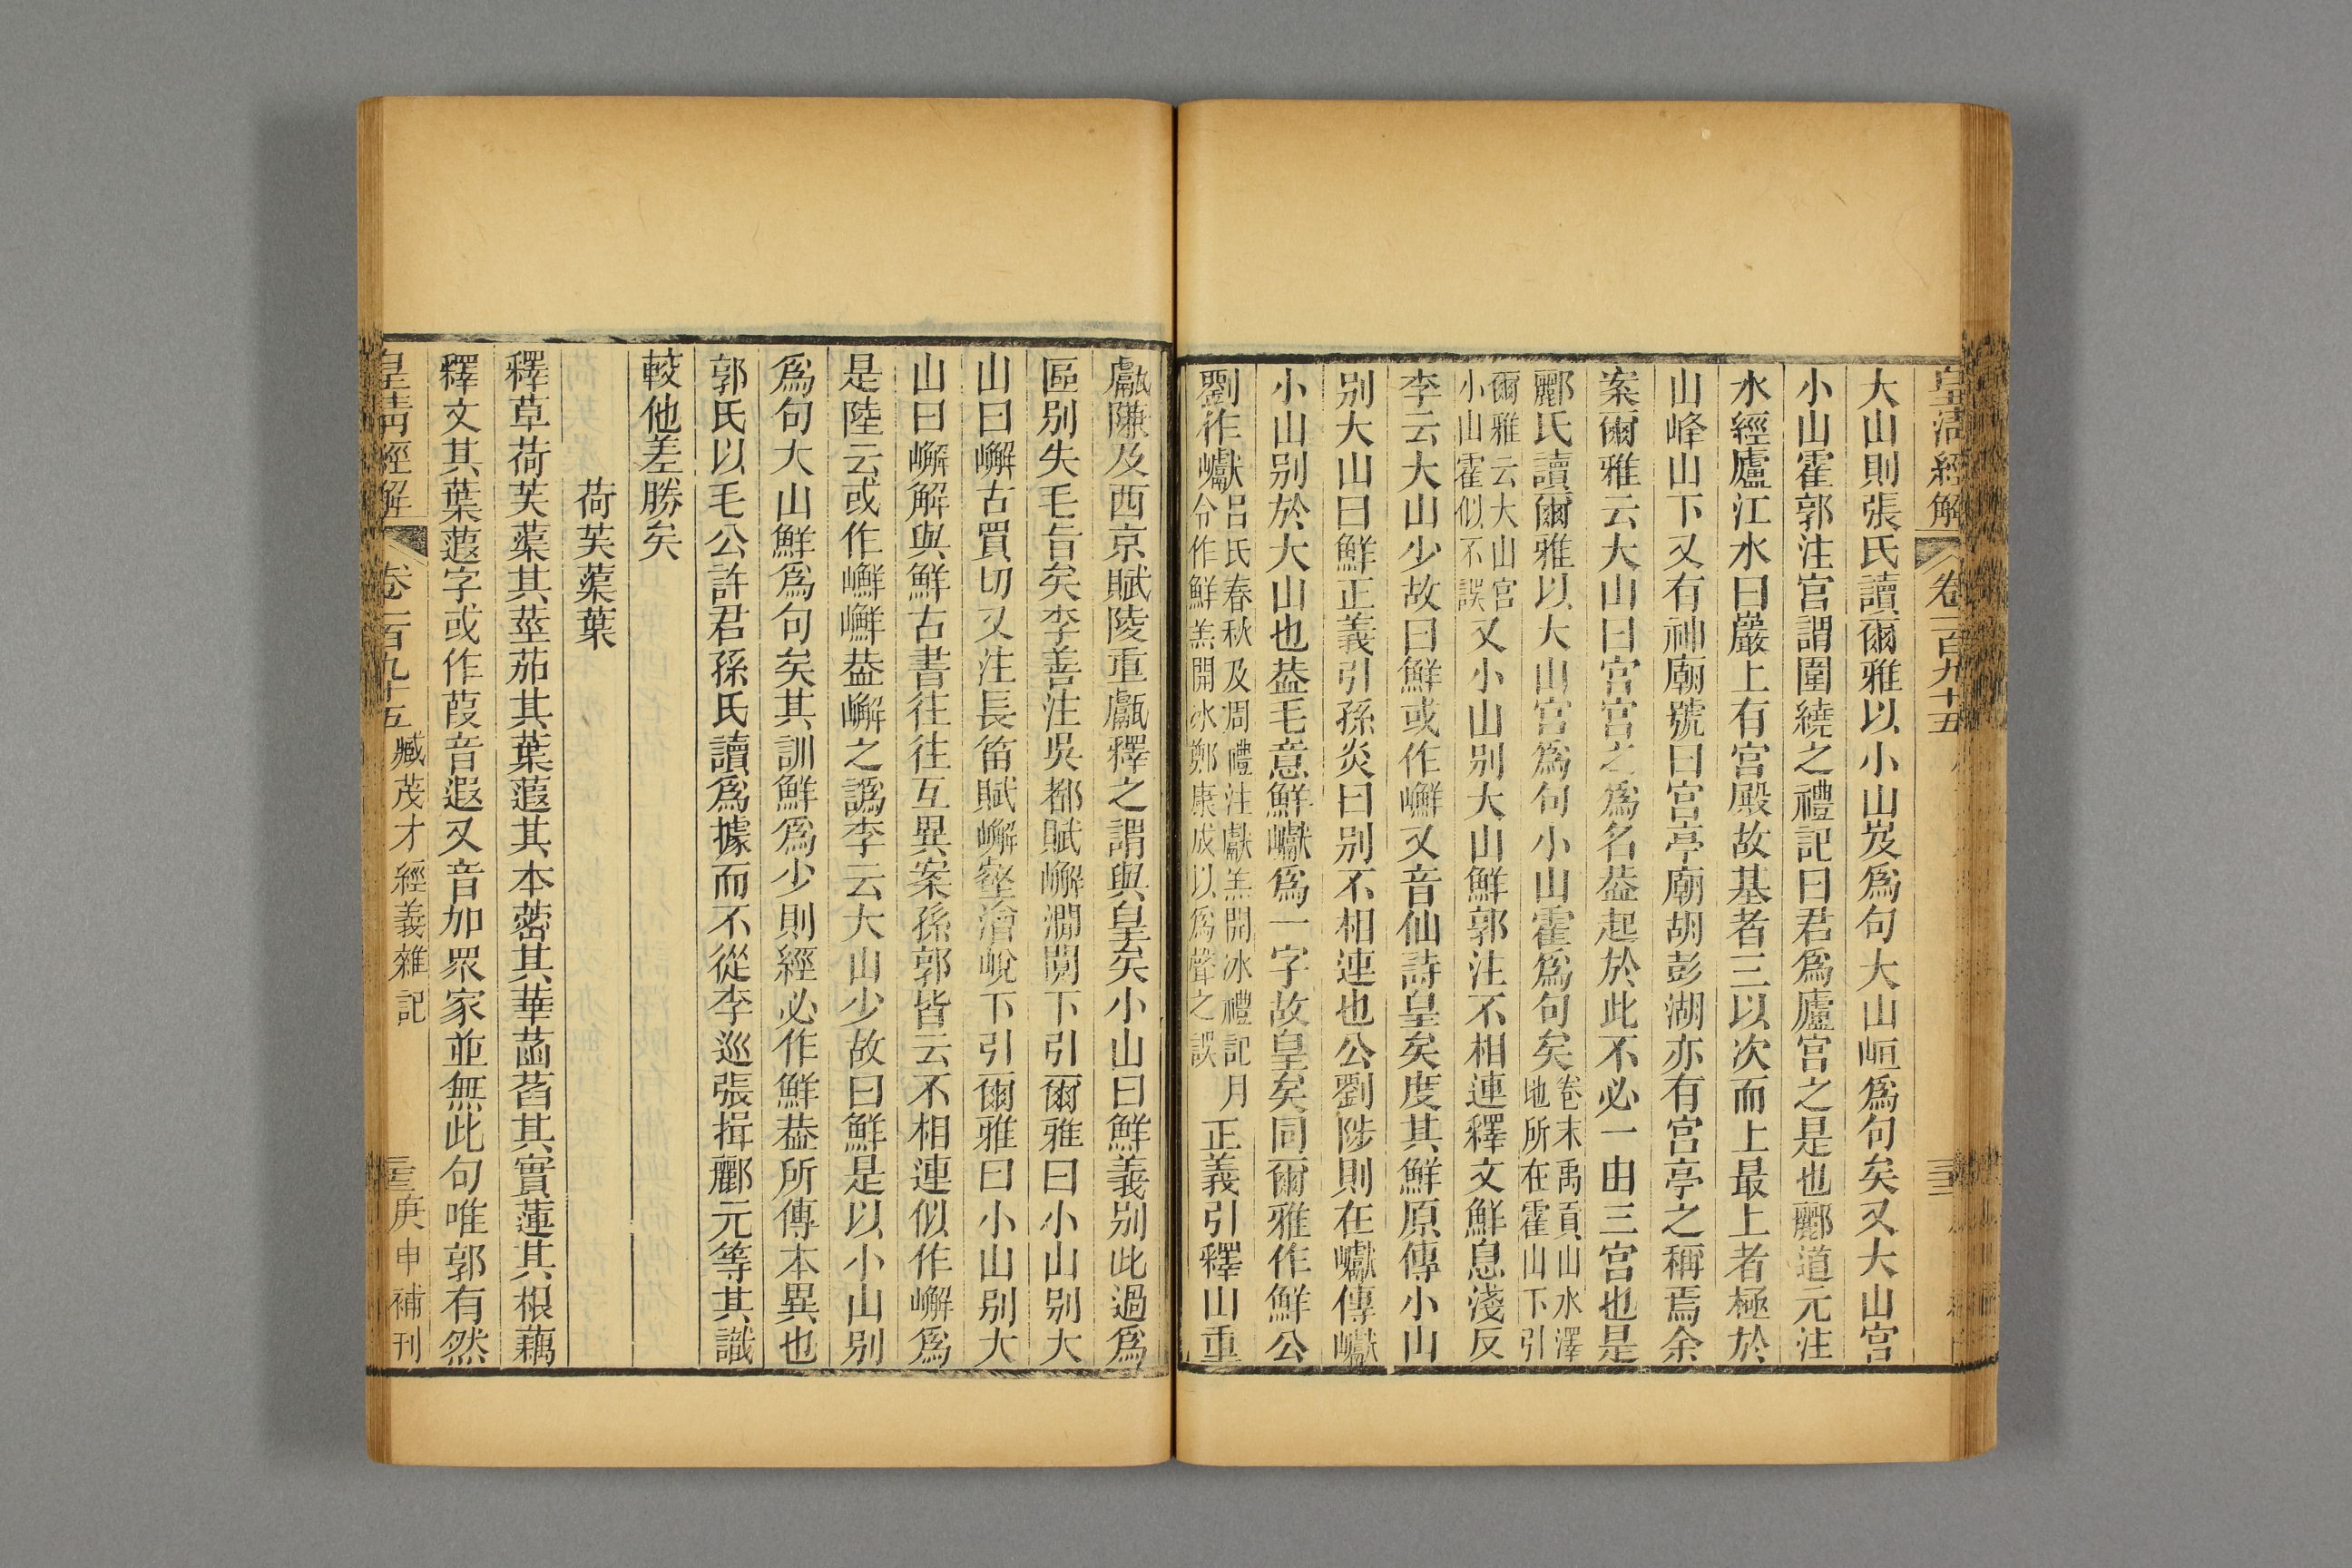 皇清經解 卷一百九十五
大山則張氏讀爾雅以小山岌爲句大山峘爲句矣又大山宮
小山霍郭注宮謂圍繞之禮記曰君爲廬宮之是也酈道元注
水經廬江水曰巖上有宮殿故基者三以次而上最上者極於
山峰山下又有神廟號曰宮亭廟胡彭湖亦有宮亭之稱焉余
案爾雅云大山曰宮宮之爲名葢起於此不必一由三宮也是
酈氏讀爾雅以大山宮爲句小山霍爲句矣卷末禹貢山水澤地所在霍山下引
爾雅云大山宮小山霍似不誤又小山别大山鮮郭注不相連釋文鮮息淺反
李云大山少故曰鮮或作嶰又音仙詩皇矣度其鮮原傳小山
别大山曰鮮正義引孫炎曰别不相連也公劉陟則在巘傳巘
小山别於大山也葢毛意鮮巘爲一字故皇矣同爾雅作鮮公
劉作巘呂氏春秋及周禮注獻羔開冰禮記月令作鮮羔開冰鄭康成以爲聲之誤正義引釋山重
甗隒及西京賦陵重甗釋之謂與皇矣小山曰鮮義别此過爲
區别失毛旨矣李善注吳都賦嶰澗閴下引爾雅曰小山别大
山曰嶰古買切又注長笛賦嶰壑澮峗下引爾雅曰小山别大
山曰嶰解與鮮古書往往互異案孫郭皆云不相連似作嶰爲
是陸云或作嶰葢嶰之譌李云大山少故曰鮮是以小山别
爲句大山鮮爲句矣其訓鮮爲少則經必作鮮葢所傳本異也
郭氏以毛公許君孫氏讀爲據而不從李巡張揖酈元等其識
較他差勝矣
荷芙蕖葉
釋草荷芙蕖其莖茄其葉蕸其本蔤其華菡萏其實蓮其根藕
釋文其葉蕸字或作葭音遐又音加眾家並無此句唯郭有然
皇清經解 卷一百九十五 臧茂才經義雜記 庚申補刊